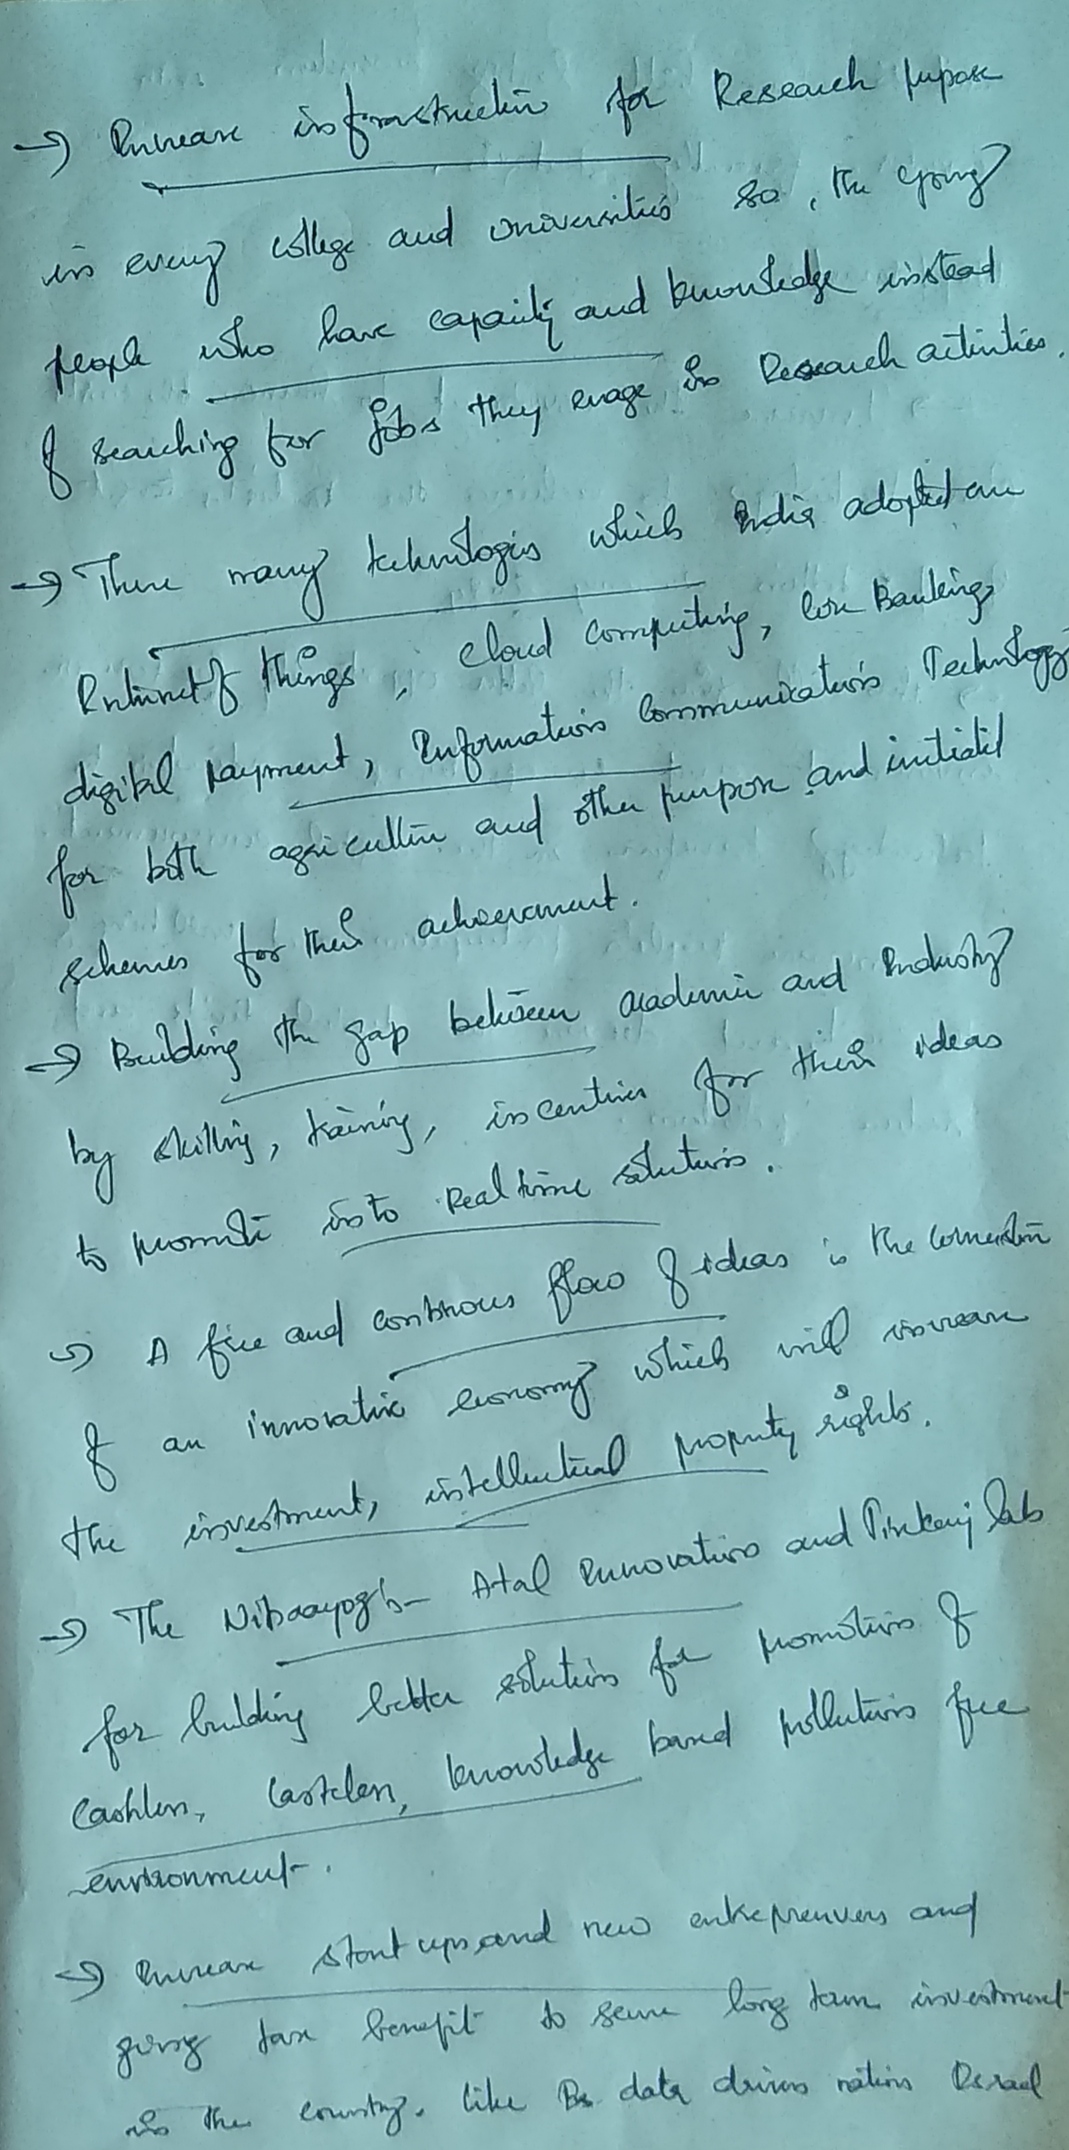 → Increase infrastructure for Research purpose
in every college and universities so, the young
people who have capacity and knowledge instead
of searching for jobs they engage in Research activities.
→ There many technologies which India adopted are
Internet of things, cloud computing, core Banking,
digital payment, Information Communication Technology
for both agriculture and other purpose and initiated
schemes for their achievement.
→ Building the gap between academic and Industry
by skilling, training, incentives for their ideas
to promote into Real time solutions.
→ A free and continous flow of ideas is the cornerstone
of an innovative economy which will increase
the investment, intellectual property rights.
→ The Nitiaayog's - Atal Innovation and Tinkering labs
for building better solutions for promotion of
Cashless, Casteless, knowledge based pollution free
environment.
→ Increase start ups and new entrepreneuers and
giving tax benefit to secure long term investment
in the country. like data driven nation Israel